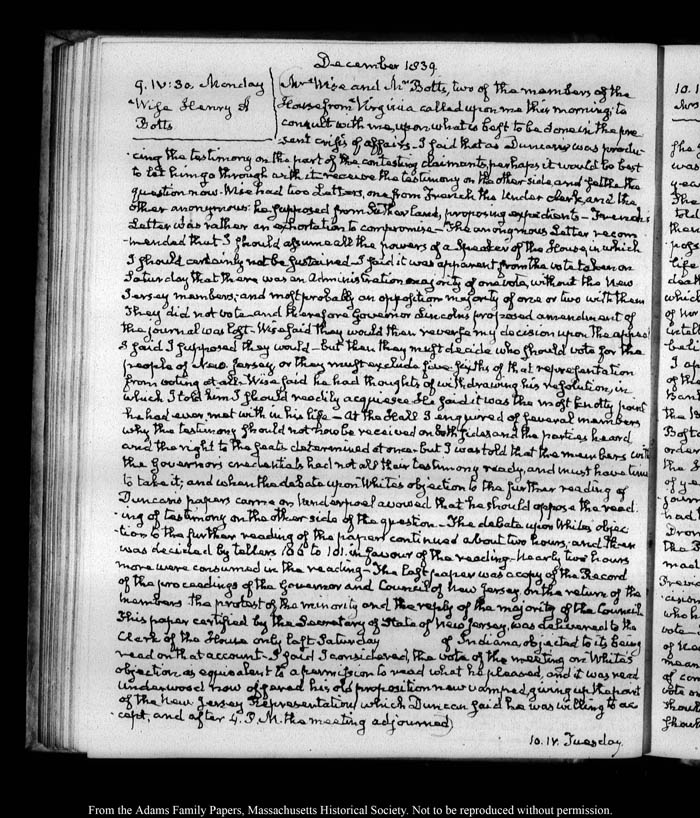 December 1839
9. IV:30. Monday
Wise Henry A
Botts
Mr Wise and Mr Botts, two of the members of the
House from Virginia called upon me this morning; to
consult with me, upon what is best to be done in the pre
sent crisis of affairs. I said that as Duncan was produ-
cing the testimony on the part of the contesting claimants, perhaps it would be best
to let him go through with it receive the testimony on the other side, and settle the
question now. Wise had two Letters, one from French the Under Clerk, and the
other anonymous: he supposed from Sutherland, proposing expedients. French's
Letter was rather an exhortation to compromise. The anonymous Letter recom
mended that I should assume all the powers of a Speaker of the House, in which
I should certainly not be sustained. I said it was apparent from the vote taken on
Saturday that there was an Administration majority of one vote, without the New
Jersey members; and most probably an opposition majority of one or two with them
They did not vote and therefore Governor Lincoln's proposed amendment of
the journal was lost. Wise said they would then reverse my decision upon the appeal
I said I supposed they would. but then they must decide who should vote for the
people of New Jersey, or they must exclude five sixths of that representation
from voting at all. Wise said he had thoughts of withdrawing his resolution, in
which I told him I should readily acquiesce. He said it was the most knotty point
he had ever met with in his life. At the Hall I enquired of several members
why the testimony should not now be received on both sides and the parties heard
and the right to the seats determined at once. but I was told that the members with
the Governor's credentials had not all their testimony ready, and must have time
to take it; and when the debate upon White's objection to the further reading of
Duncan's papers came on Vanderpoel avowed that he should oppose the read
ing of testimony on the other side of the question. The debate upon White's objec
tion to the further reading of the papers continued about two hours, and then
was decided by tellers to 101. in favour of the reading. Nearly two hours
more were consumed in the reading. The last paper was a copy of the Record
of the proceedings of the Governor and Council of New Jersey on the return of the
members the protest of the minority and the reply of the majority of the Council
This paper certified by the Secretary of State of New Jersey, was delivered to the
Clerk of the House only last Saturday of Indiana, objected to its being
read on that account. I said I considered, the vote of the meeting on White's
objection as equivalent to a permission to read what he pleased, and it was read
Underwood now offered his old proposition new vamped, giving up the part
of the New Jersey Representation, which Duncan said he was willing to ac
cept, and after 4. P.M. the meeting adjourned
10. IV. Tuesday.
From the Adams Family Papers, Massachusetts Historical Society. Not to be reproduced without permission.